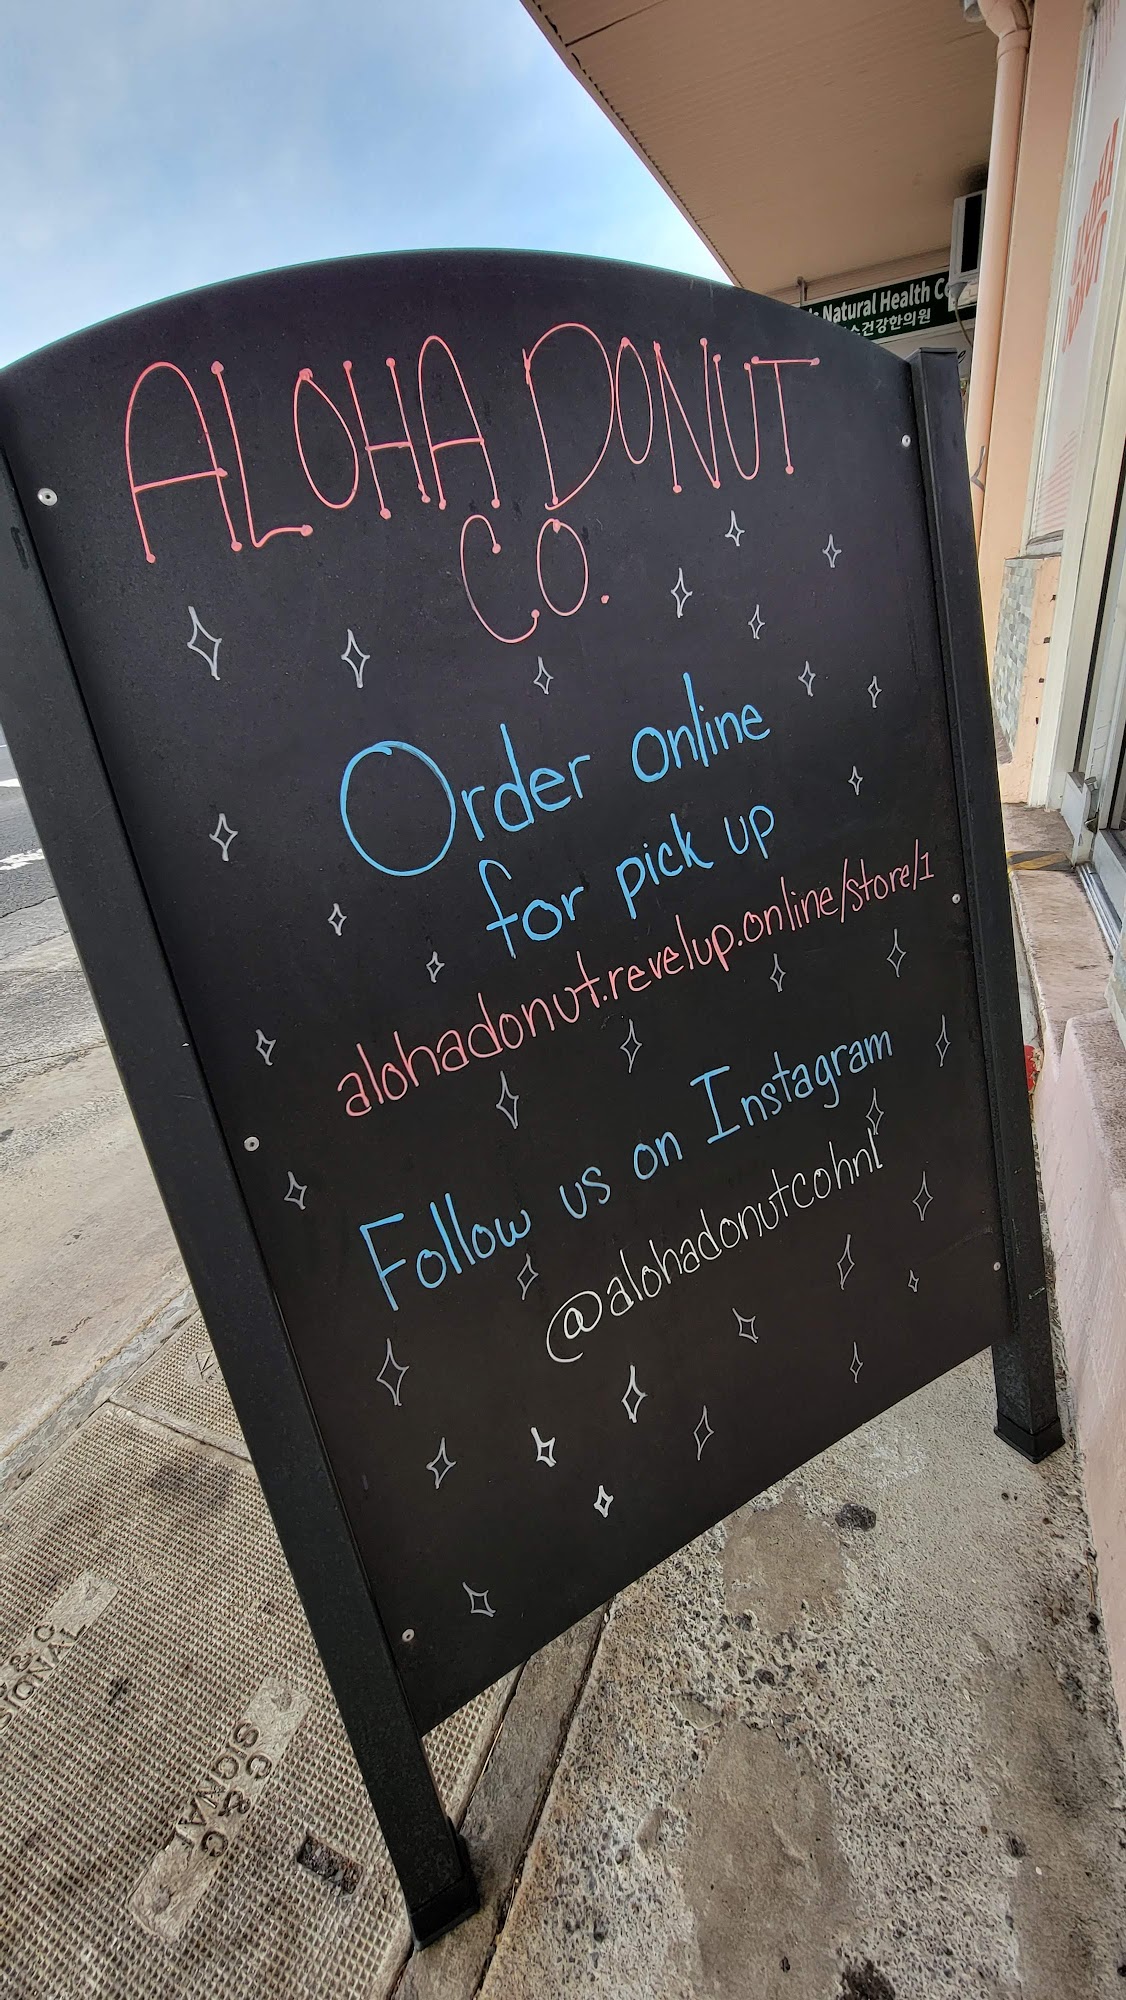 ALOHA DONUT
CO.
Order online
for pick up
alohadonut.revelup.online/store/1
Follow us on Instagram
@alohadonutcohnl
Natural Health
건강한의원
ALOHA
DONUT
C & C
SIGNAL